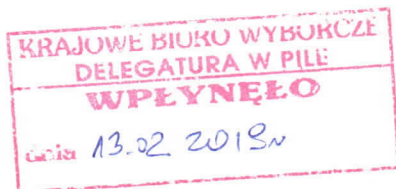 KRAJOWE BIURO WYBORCZE
DELEGATURA W PILE
WPŁYNĘŁO
dnia 13.02 2019r